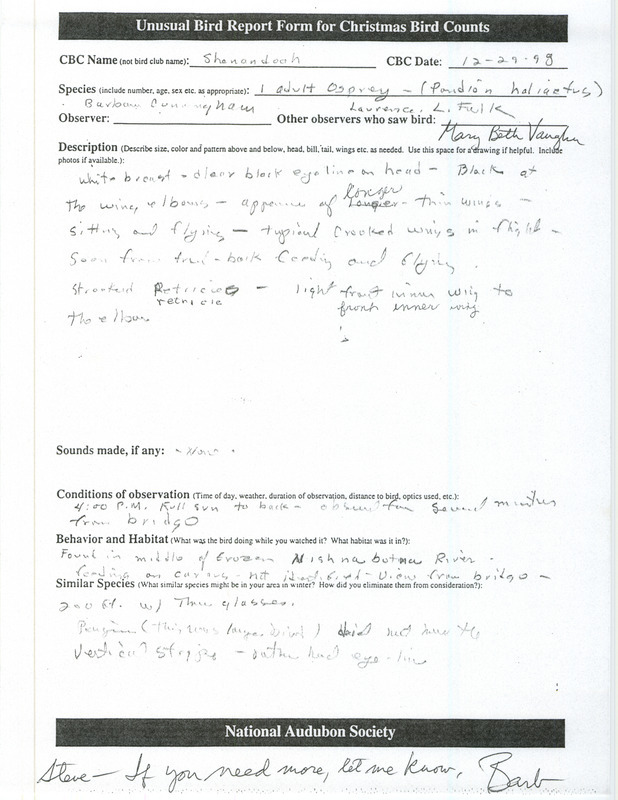 Unusual Bird Report Form for Christmas Bird Counts
CBC Name (not bird club name): Shenandoah CBC Date: 12-29-98
Species (include number, age, sex etc. as appropriate): 1 adult Osprey - (Pandion haliaetus)
Barbara Cunningham Laurence L. Fulk
Observer: Other observers who saw bird: Mary Beth Vaughn
Description (Describe size, color and pattern above and below, head, bill, tail, wings etc. as needed. Use this space for a drawing if helpful. Include
photos if available.):
white breast - clear black eye line on head - Black at
the wing elbows - appearance of longer - thin wings -
sitting and flying - typical crooked wings in flight -
Seen from front - back feeding and flying.
retricie
light front inner wing to
front inner wing
the elbow
Sounds made, if any: - None -
Conditions of observation (Time of day, weather, duration of observation, distance to bird, optics used, etc.):
4:00 P.M. Full sun to back - observed for several minutes
from bridge
Behavior and Habitat (What was the bird doing while you watched it? What habitat was it in?):
Found in middle of frozen Nishnabotna River.
feeding on carcass - not identified - view from bridge -
Similar Species (What similar species might be in your area in winter? How did you eliminate them from consideration?):
200 ft. w/ Thru glasses.
(this was larger bird) did not have the
vertical stripes - rather had eye-line
National Audubon Society
Steve - If you need more, let me know, Barb